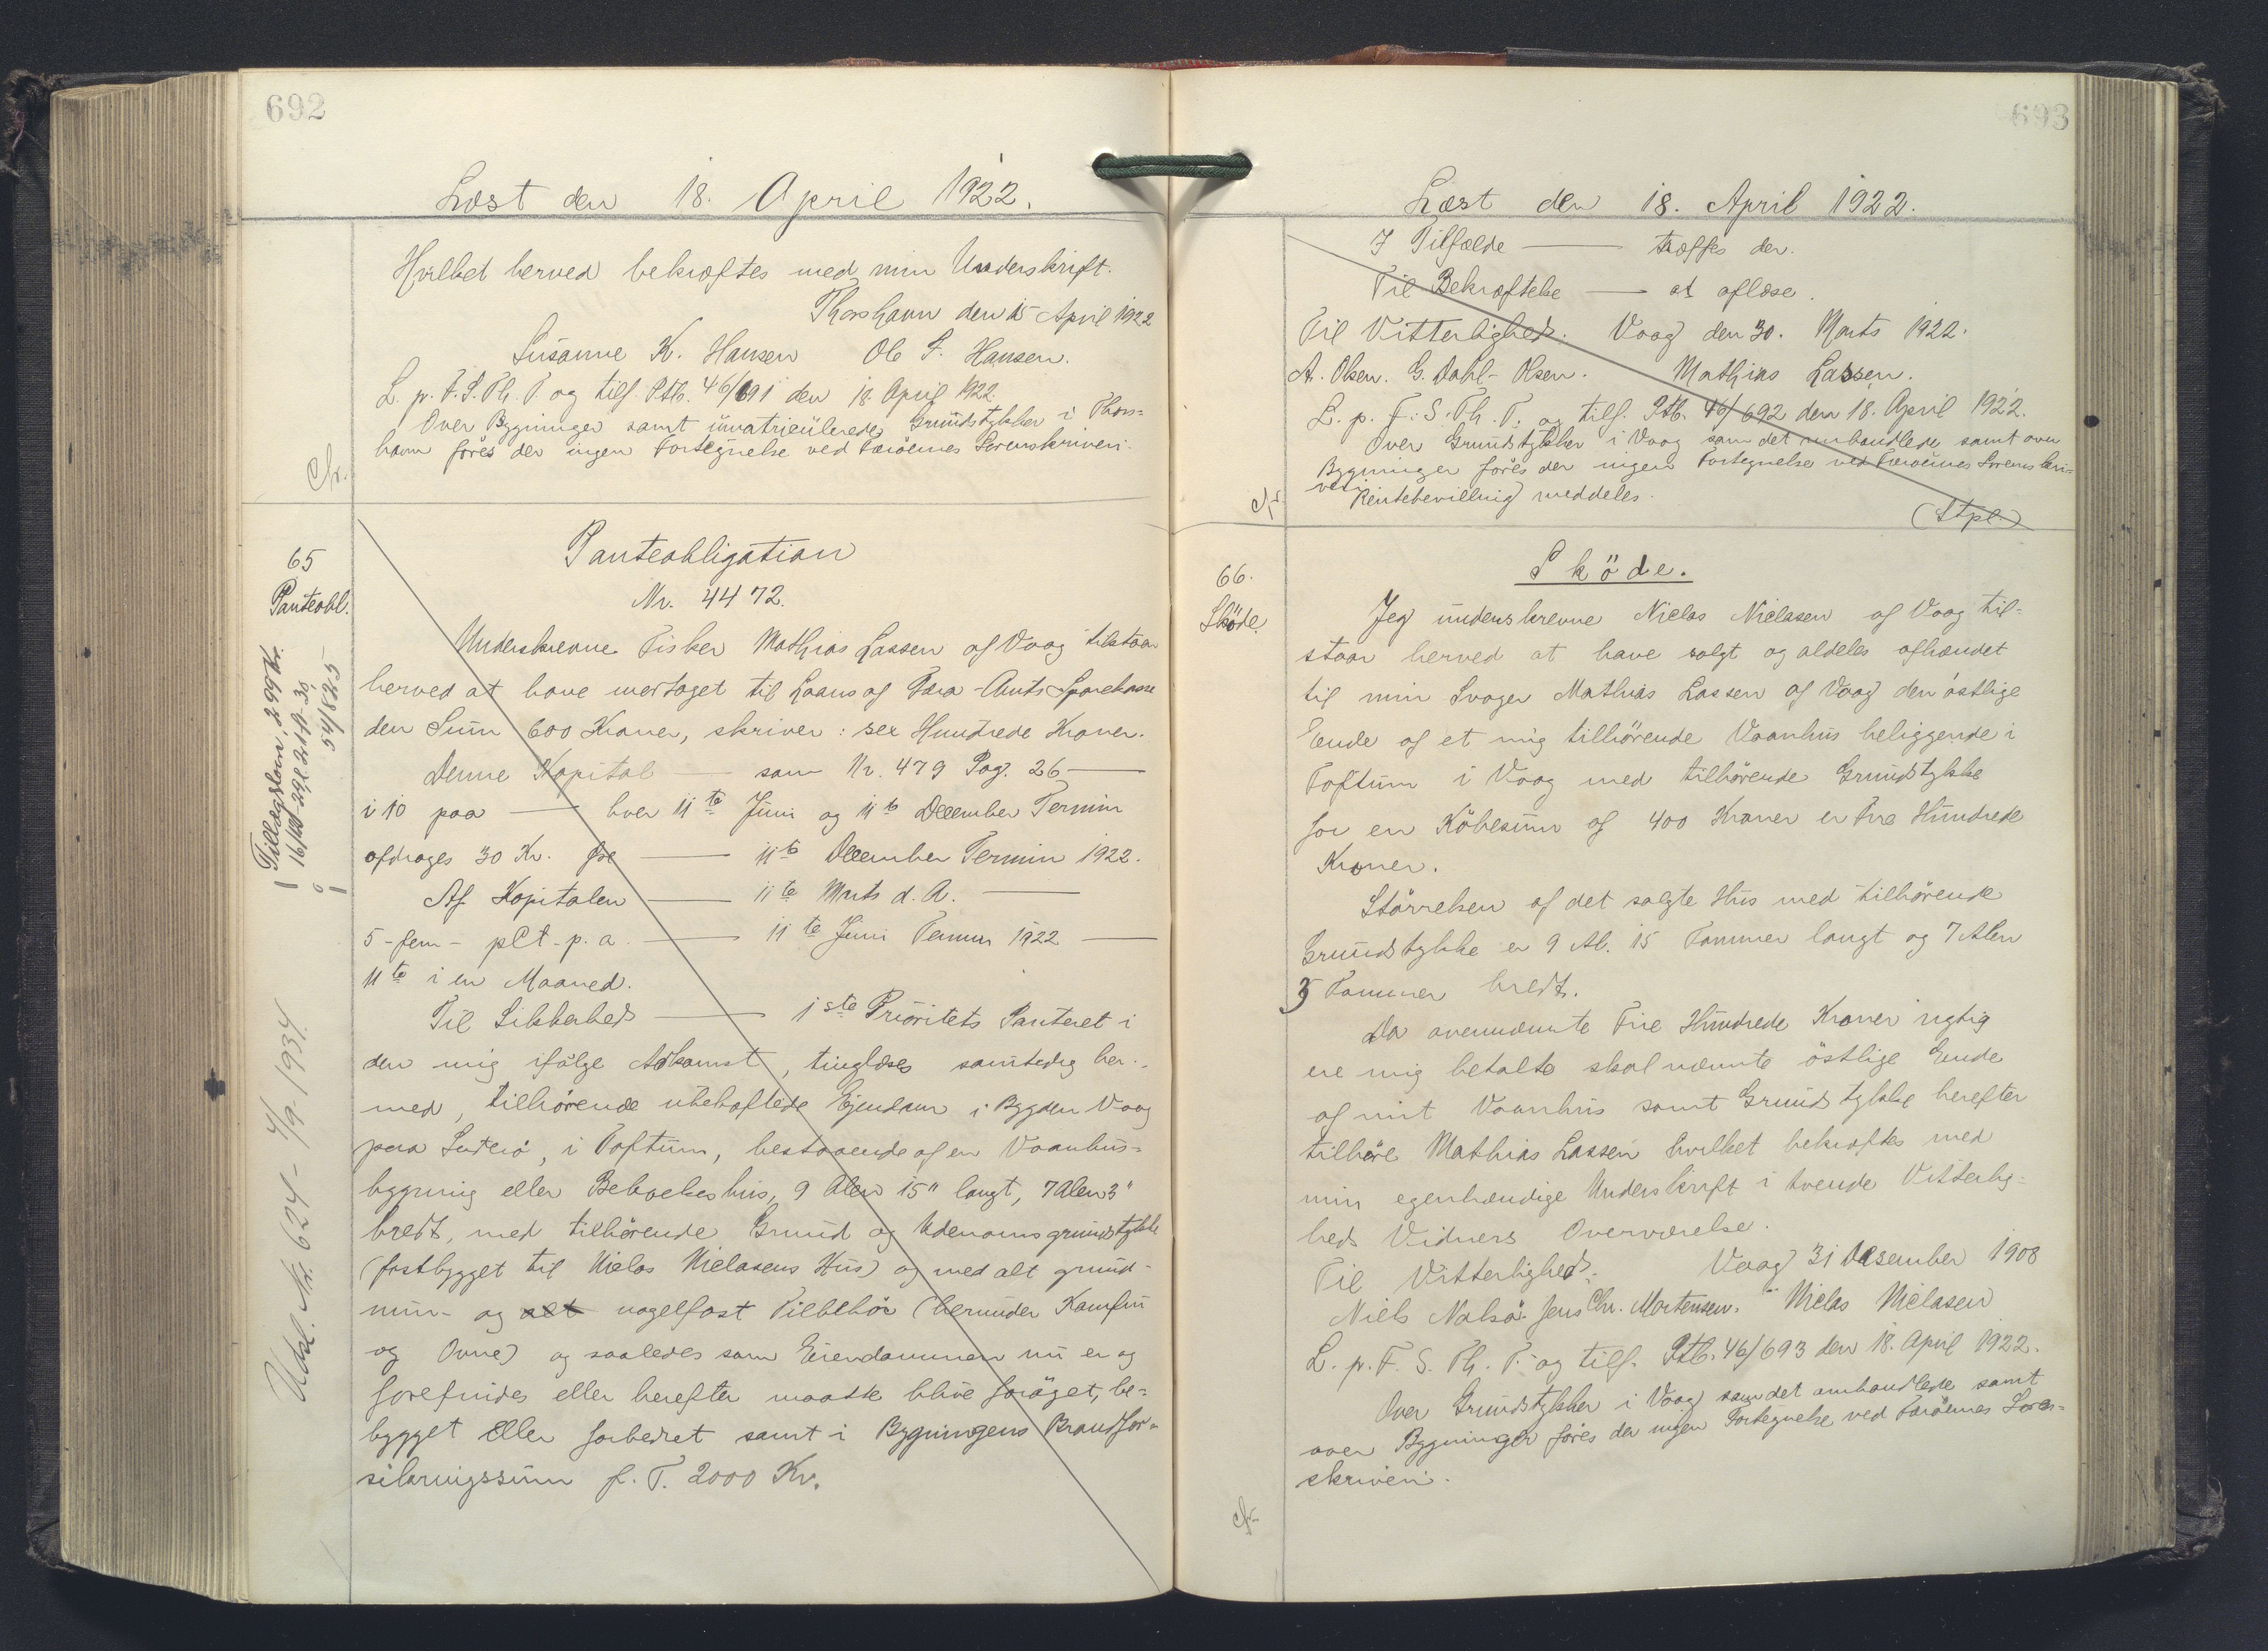 692
Læst den 18. April 1922.
Hvilket herved bekræftes med min Underskrift.
Thorshavn den 15 April 1922
Susanne K. Hansen Ole F. Hansen.
L. p. F. S. Th. T. og tilf. Ptb. 46/691 den 18. April 1922.
Over Bygninger samt umatriculerede Grundstykker i Thors=
havn föres der ingen Fortegnelse ved Færöernes Sorenskriveri.
Cfr.
65
Panteobl.
Tillægslaan, 299 Kr.
54/825
Udsl. Nr. 624 - 4/9. 1934.
Panteobligation
Nr. 4472.
Underskrevne Fisker Mathias Lassen af Vaag tilstaar
herved at have modtaget til Laans af Færø Amts Sparekasse
den Sum 600 Kroner, skriver: sex Hundrede Kroner.
Denne Kapital — som Nr. 479 Pag. 26 —
i 10 paa — hver 11te Juni og 11te December Termin
afdrages 30 Kr. før — 11te December Termin 1922.
Af Kapitalen — 11te Marts d. A. —
5 - fem - pCt. p. a. — 11te Juni Termin 1922 —
11te i en Maaned.
Til Sikkerhed — 1ste Prioritets Panteret i
den mig ifölge Adkomst, tinglæses samtidig her-
med, tilhörende ubehæftede Ejendom i Bygden Vaag
paa Suderö, i Toftum, bestaaende af en Vaanhus=
bygning eller Beboelseshus, 9 Alen 15" langt, 7 Alen 3"
bredt, med tilhörende Grund og Udenomsgrundstykke
(fastbygget til Niclas Niclasens Hus) og med alt grund-
mur- og alt nagelfast Tilbehör (herunder Komfur
og Ovne) og saaledes som Eiendommen nu er og
forefindes eller herefter maatte blive foröget, be=
bygget eller forbedret samt i Bygningens Brandfor=
sikringssum p. T. 2000 Kr.
693
Læst den 18. April 1922.
I Tilfælde — træffes der.
Til Bekræftelse — at aflæse.
Til Vitterlighed: Vaag den 30. Marts 1922.
A. Olsen. G. Dahl-Olsen. Mathias Lassen.
L. p. F. S. Th. T. og tilf. Ptb. 46/692 den 18. April 1922.
Over Grundstykker i Vaag som det omhandlede samt over
Bygninger föres der ingen Fortegnelse ved Færöernes Sorenskri=
veri.
Rentebevilling meddeles.
(Stpl.)
Cfr.
66.
Sköde.
Sköde.
Jeg underskrevne Niclas Niclasen af Vaag til-
staar herved at have solgt og aldeles afhændet
til min Svoger Mathias Lassen af Vaag den östlige
Ende af et mig tilhörende Vaanhus beliggende i
Toftum i Vaag med tilhörende Grundstykke
for en Köbesum af 400 Kroner er Fire Hundrede
Kroner.
Störrelsen af det solgte Hus med tilhörende
Grundstykke er 9 Al. 15 Tommer langt og 7 Alen
3 Tommer bredt.
Da ovennævnte Fire Hundrede Kroner rigtig
ere mig betalte skal nævnte östlige Ende
af mit Vaanhus samt Grundstykke herefter
tilhöre Mathias Lassen hvilket bekræftes med
min egenhændige Underskrift i tvende Vitterlig=
heds Vidners Overværelse.
Til Vitterlighed: Vaag 31 Desember 1908
Niels Nolsö. Jens Chr. Mortensen. Niclas Niclasen
L. p. F. S. Th. T. og tilf. Ptb. 46/693 den 18. April 1922.
Over Grundstykker i Vaag som det omhandlede samt
over Bygninger föres der ingen Fortegnelse ved Færöernes Soren=
skriveri.
Cfr.